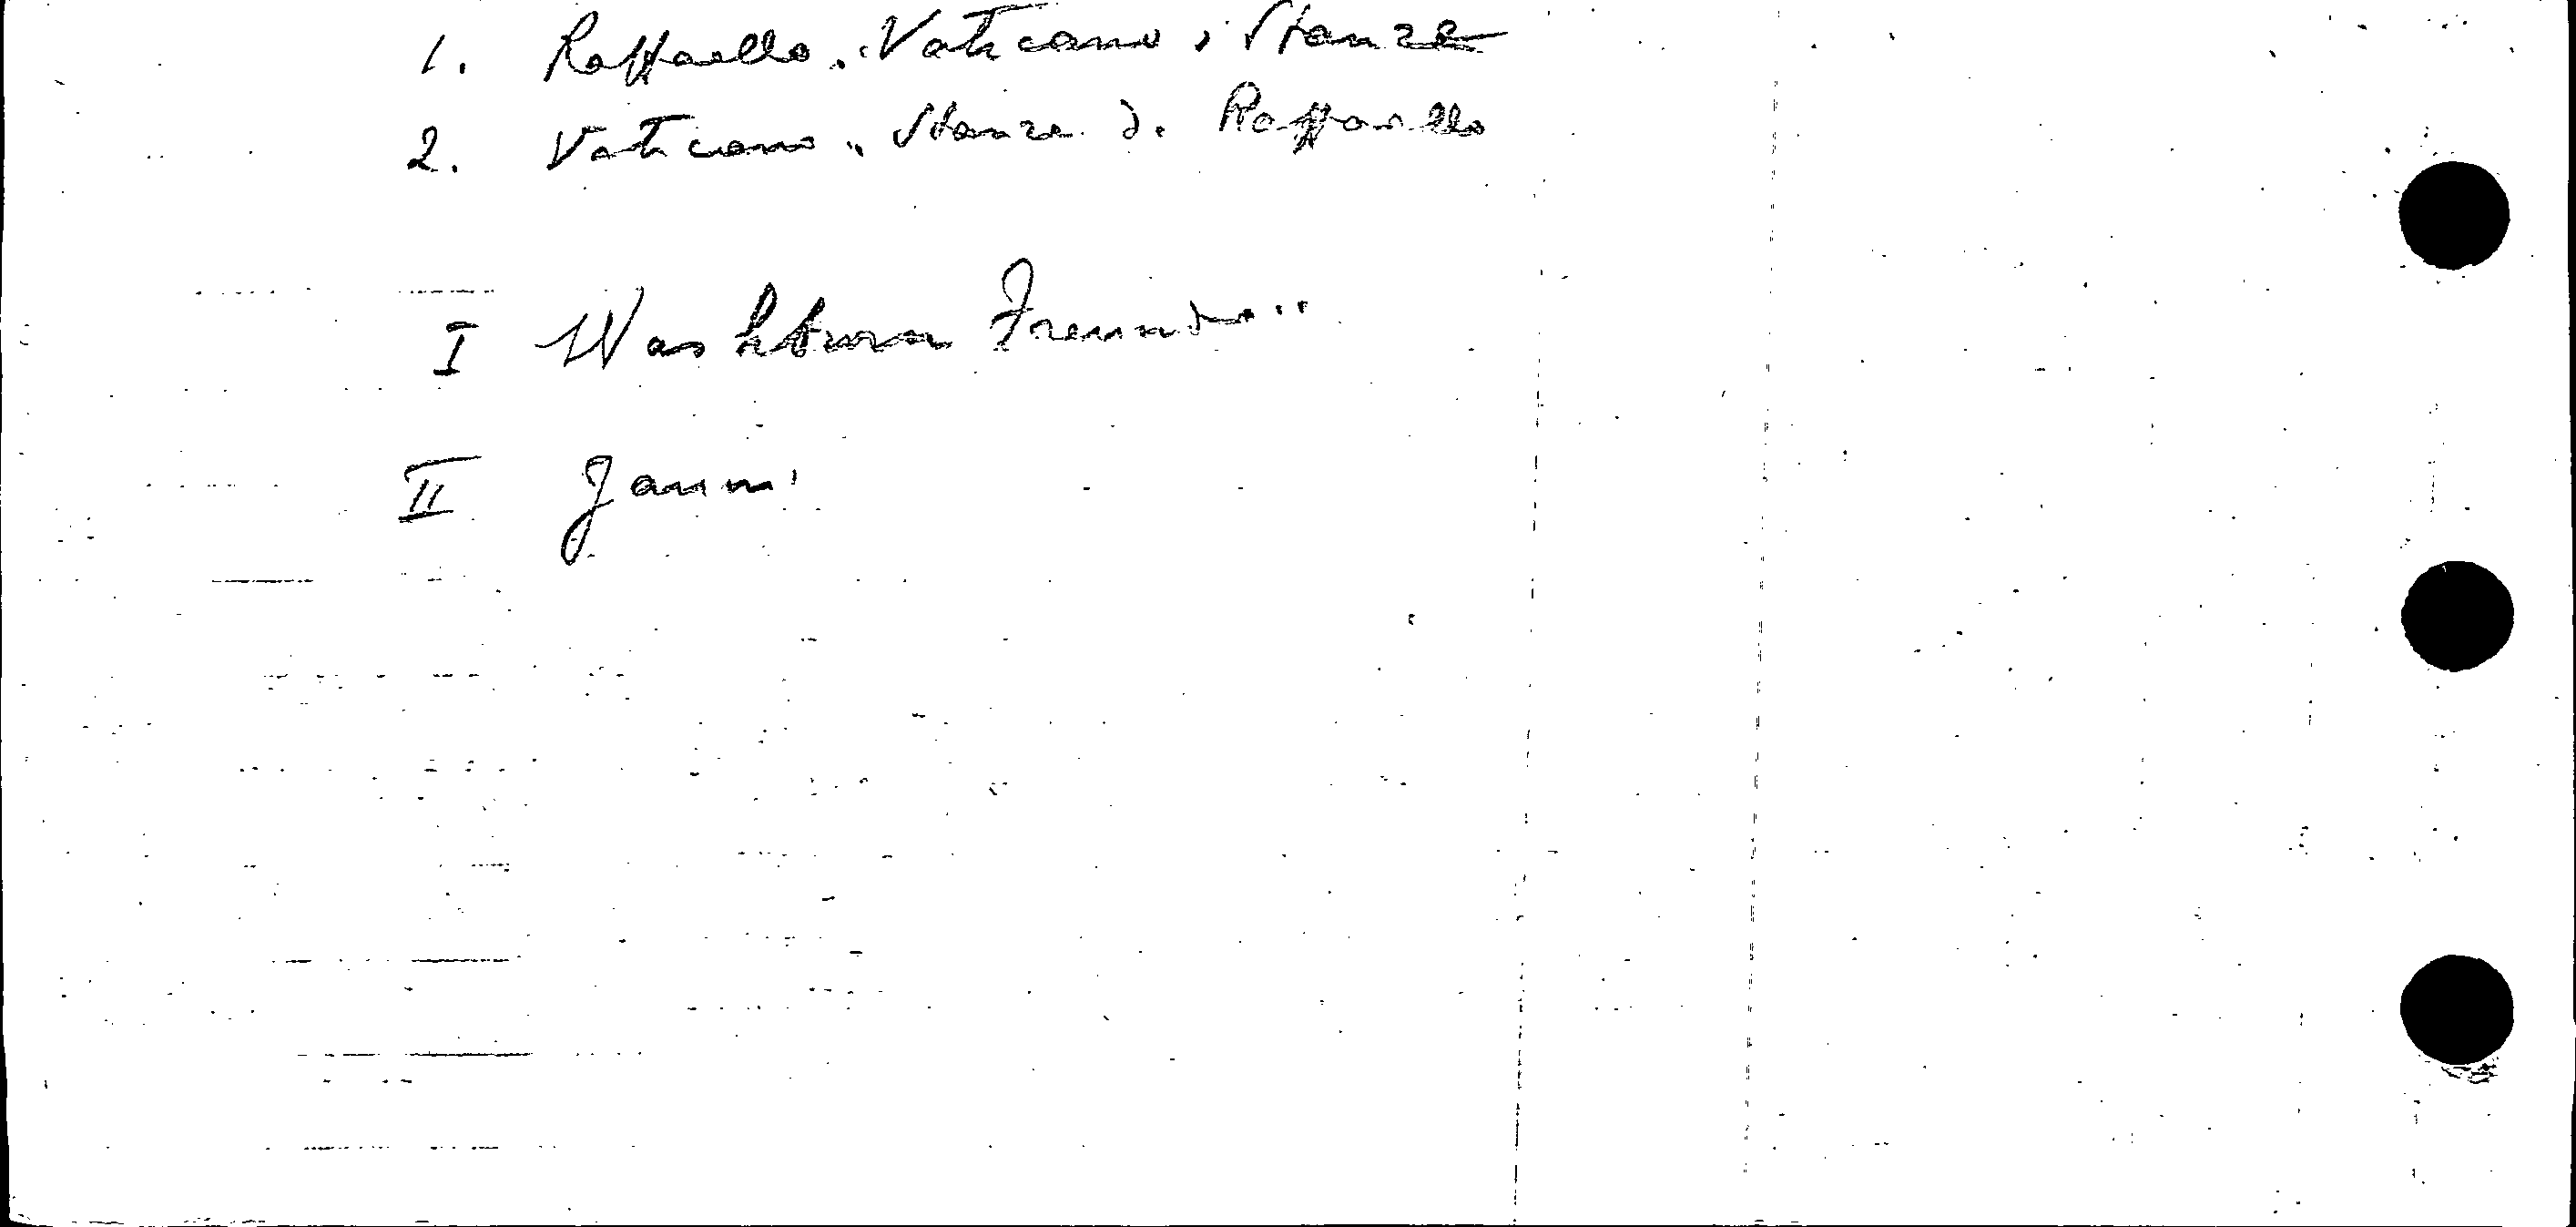 1. Raffaello. Vaticano, Stanze
2. Vaticano, Stanze di Raffaello
I Washburn Freund
II